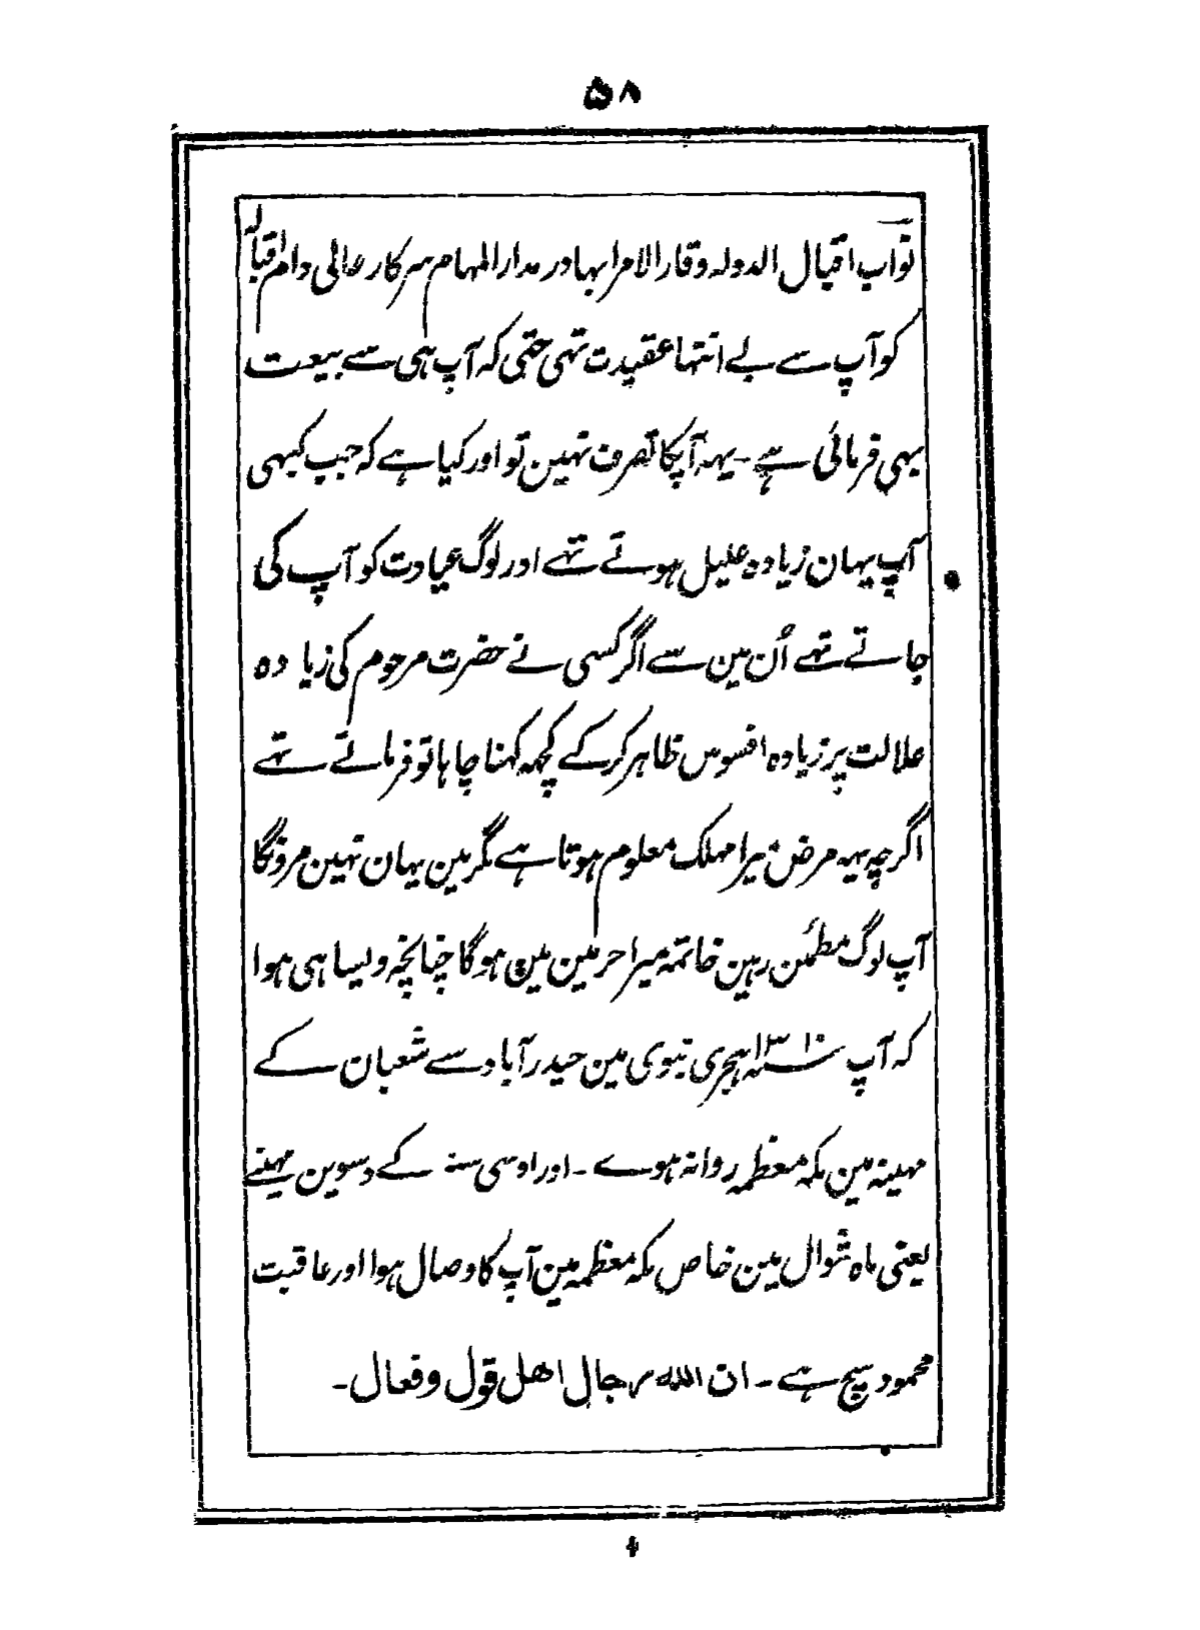 ۵۸
نواب اقبال الدولہ وقار الامرا بہادر مدار المہام سرکار عالی دام اقبالہ
کو آپ سے بے انتہا عقیدت تہی حتی کہ آپ ہی سے بیعت
بہی فرمائی ہے ۔ یہہ آپکا تصرف نہین تو اور کیا ہے کہ جب کبہی
آپ یہان زیادہ علیل ہوتے تہے اور لوگ عیادت کو آپ کی
جاتے تہے اُن مین سے اگر کسی نے حضرت مرحوم کی زیادہ
علالت پر زیادہ افسوس ظاہر کر کے کچہہ کہنا چاہا تو فرماتے تہے
اگرچہ یہہ مرض میرا مہلک معلوم ہوتا ہے مگر مین یہان نہین مرونگا
آپ لوگ مطمئن رہین خاتمہ میرا حرمین مین ہوگا چنانچہ ویسا ہی ہوا
کہ آپ سنہ ۱۳۱۰ ہجری نبوی مین حیدرآباد سے شعبان کے
مہینہ مین مکہ معظمہ روانہ ہوے ۔ اور اوسی سنہ کے دسوین مہینے
یعنی ماہ شوال مین خاص مکہ معظمہ مین آپ کا وصال ہوا اور عاقبت
محمود سچ ہے ۔ ان اللہ رجال اهل قول وفعال ۔